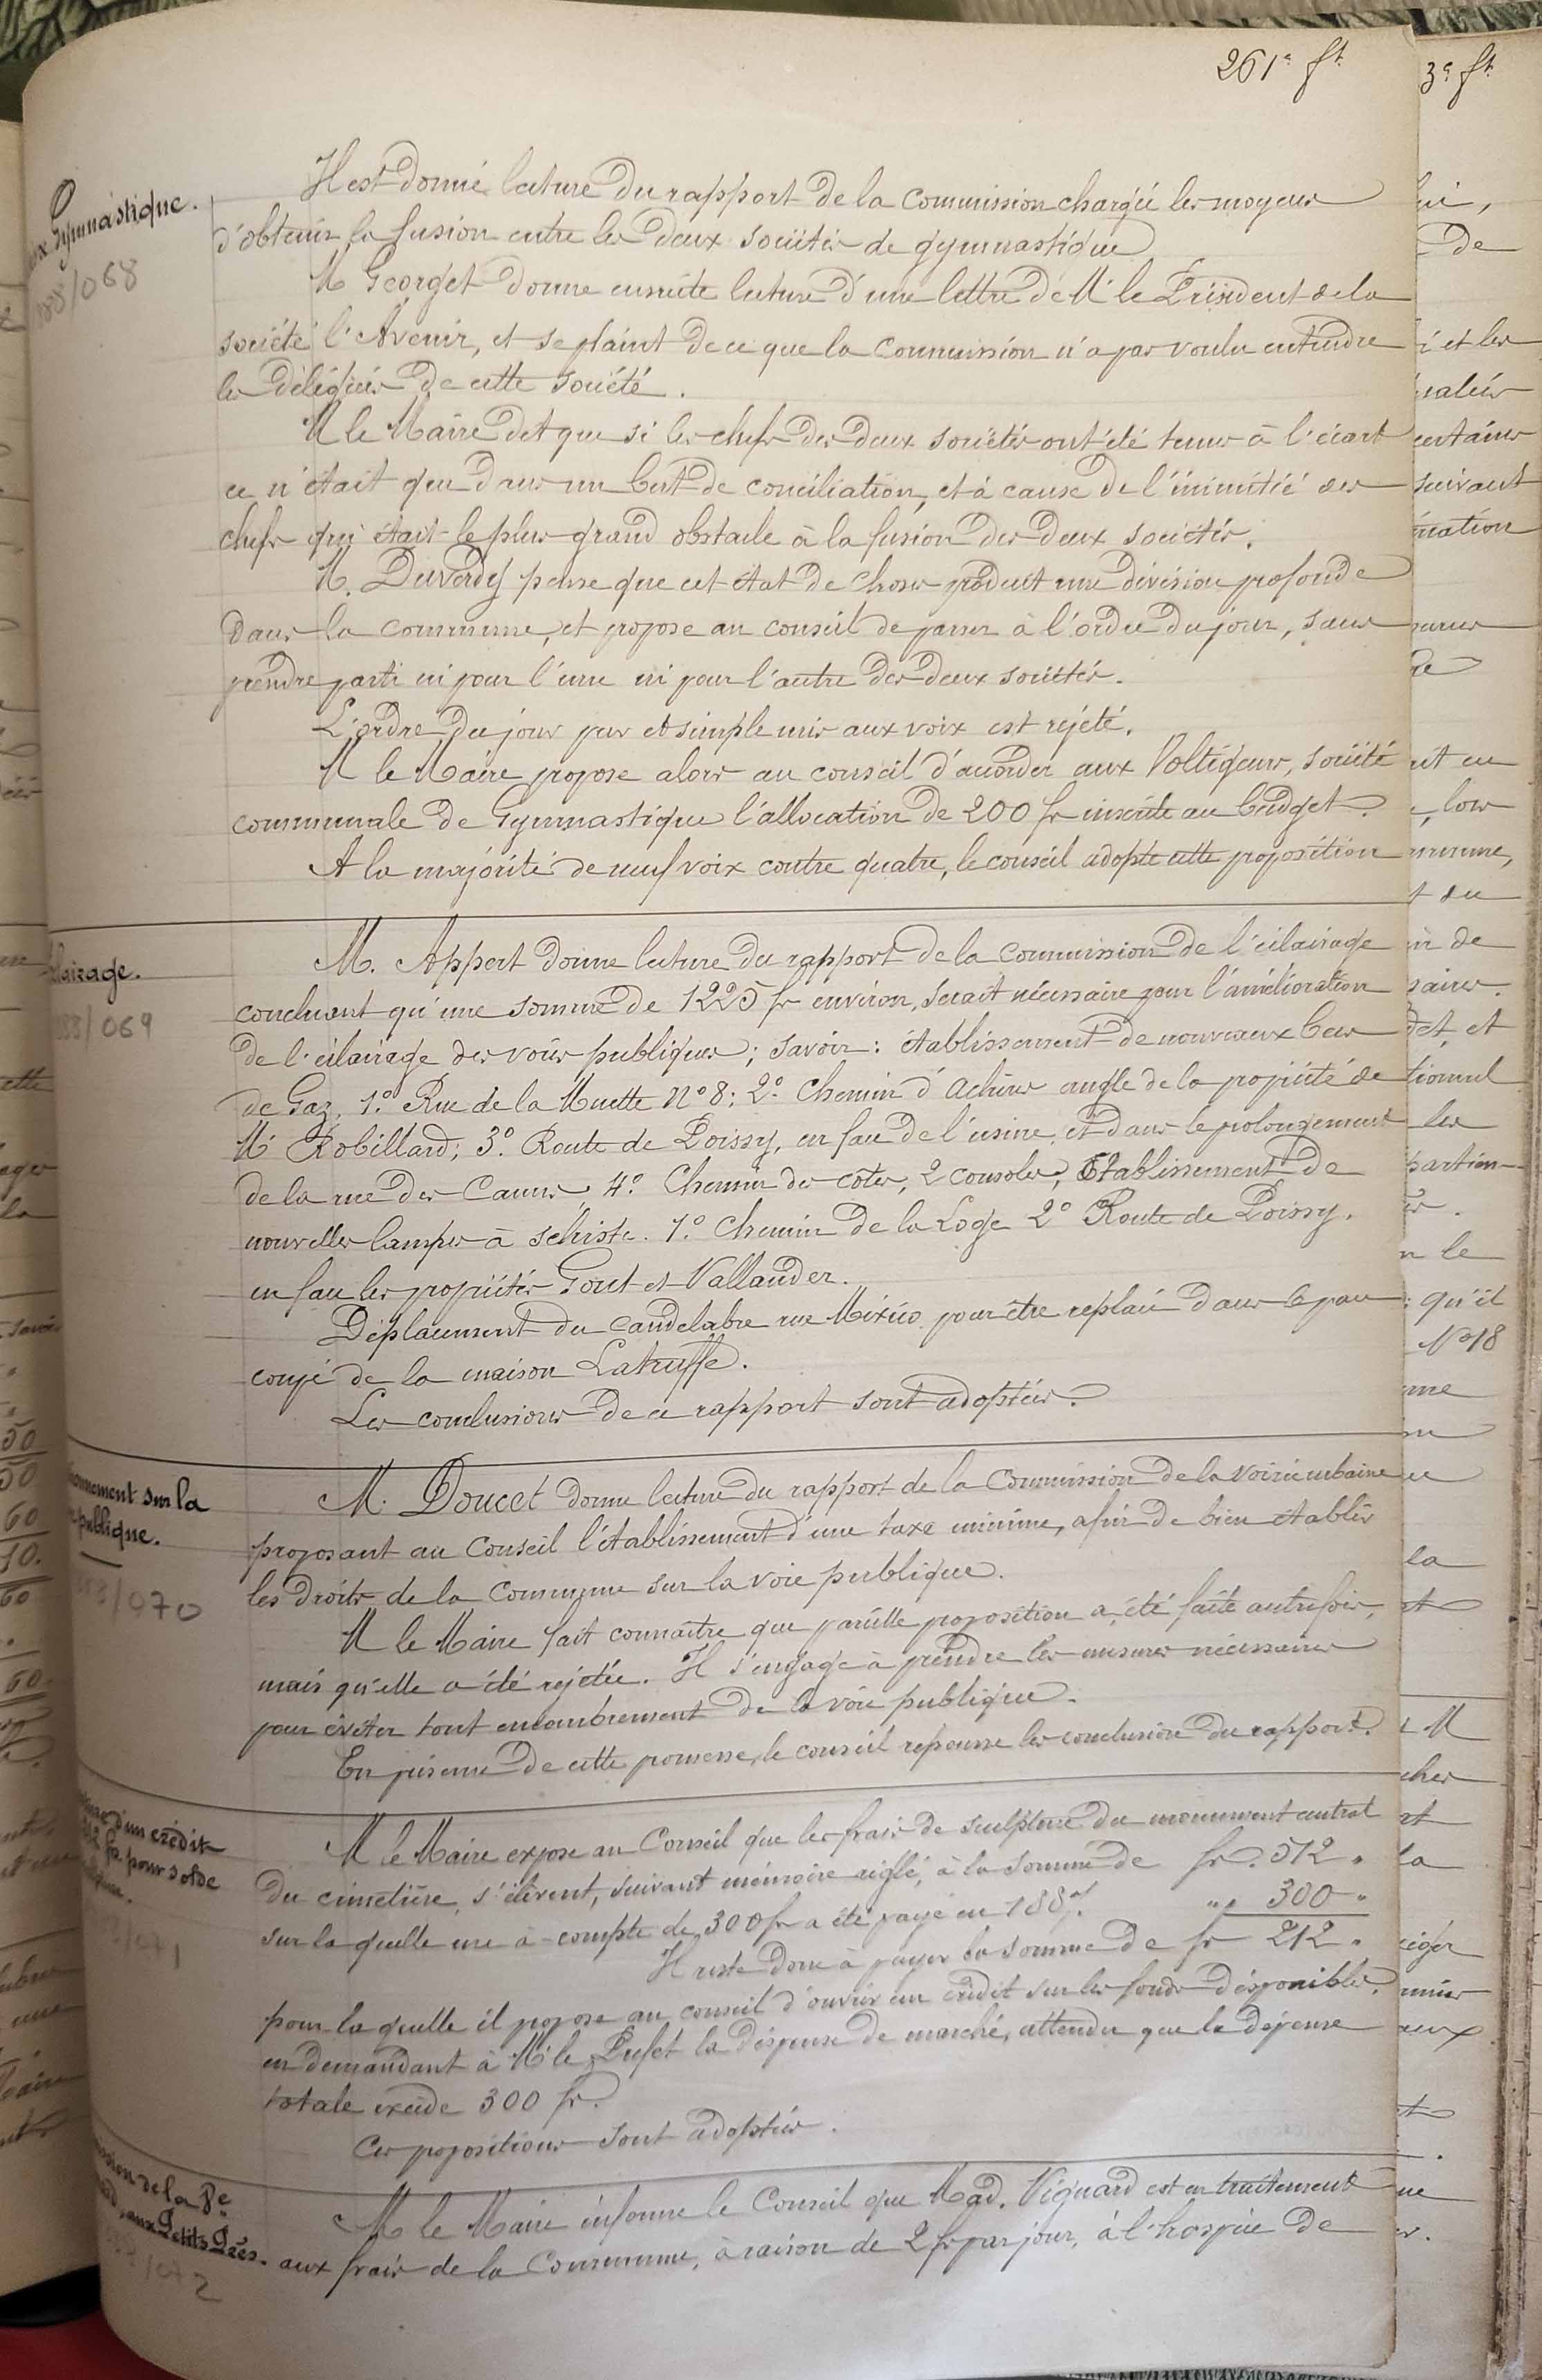 261e ft
3e ft
Gymnastique.
/068
Il est donné lecture du rapport de la Commission chargée les moyens
d'obtenir la fusion entre les deux sociétés de gymnastique
M Georget donne ensuite lecture d'une lettre de Mr le Président de la
société l'Avenir, et se plaint de ce que la commission n'a pas voulu entendre
les délégués de cette société.
M le Maire dit que si les chefs des deux sociétés ont été tenus à l'écart
ce n'était que dans un but de conciliation, et à cause de l'inimitié des
chefs qui était le plus grand obstacle à la fusion des deux sociétés.
M. Duverdy pense que cet état de choses produit une division profonde
dans la commune, et propose au conseil de passer à l'ordre du jour, sans
prendre parti ni pour l'une ni pour l'autre des deux sociétés.
L'ordre du jour pur et simple mis aux voix est rejeté.
M le Maire propose alors au conseil d'accorder aux Voltigeurs, société
communale de Gymnastique l'allocation de 200 fr inscrite au budget.
A la majorité de neuf voix contre quatre, le conseil adopte cette proposition
lairage.
/069
M. Appert donne lecture du rapport de la Commission de l'éclairage
concluant qu'une somme de 1225 fr environ, serait nécessaire pour l'amélioration
de l'éclairage des voies publiques; savoir: établissement de nouveaux becs
de Gaz, 1º Rue de la Muette Nº 8; 2º Chemin d'Achères angle de la propriété de
Mr Robillard; 3º Route de Poissy, en face de l'usine, et dans le prolongement
de la rue des Cannes 4º Chemin des côtes, 2 consoles; Etablissement de
nouvelles lampes à schiste. 1º Chemin de la Loge 2º Route de Poissy.
en face les propriétés Gout et Vallander.
Déplacement du Candelabre rue Mexico pour être replacé dans le pan
coupé de la maison Latruffe.
Les conclusions de ce rapport sont adoptées.
onnement sur la
publique.
/070
M. Doucet donne lecture du rapport de la Commission de la voirie urbaine
proposant au Conseil l'établissement d'une taxe minime, afin de bien établir
les droits de la Commune sur la voie publique.
M le Maire fait connaître que pareille proposition a été faite autrefois,
mais qu'elle a été rejetée. Il s'engage à prendre les mesures nécessaires
pour éviter tout encombrement de la voie publique.
En présence de cette promesse, le conseil repousse les conclusions du rapport.
d'un crédit
212 fr. pour solde
/071
M le Maire expose au Conseil que les frais de sculpture du monument central
du cimetière, s'élèvent, suivant mémoire réglé, à la somme de fr. 512 "
sur la quelle une à-compte de 300 fr a été payé en 1887. " " 300 "
Il reste donc à payer la somme de fr 212 "
pour la quelle il propose au conseil d'ouvrir un crédit sur les fonds disponibles,
en demandant à Mr le Préfet la dispense de marché, attendu que la dépense
totale excède 300 fr.
Ces propositions sont adoptées.
de la De
aux Petits Prés.
/072
M le Maire informe le Conseil que Mad. Viguard est en traitement
aux frais de la Commune, à raison de 2 fr par jour, à l'hospice de